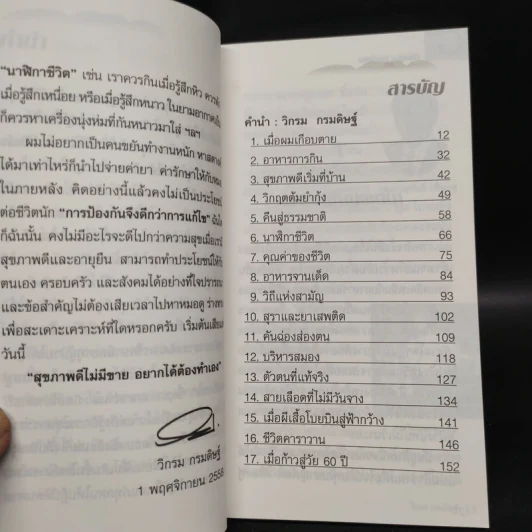 "นาฬิกาชีวิต" เช่น เราควรกินเมื่อรู้สึกหิว
เมื่อรู้สึกเหนื่อย หรือเมื่อรู้สึกหนาว ในยามอากาศ
ก็ควรหาเครื่องนุ่งห่มที่กันหนาวมาใส่ ฯลฯ
ผมไม่อยากเป็นคนขยันทำงานหนัก
ได้มาเท่าไหร่ก็นำไปจ่ายค่ายา ค่ารักษาให้กับ
ในภายหลัง คิดอย่างนี้แล้วคงไม่เป็นประโยชน์
ต่อชีวิตนัก "การป้องกันจึงดีกว่าการแก้ไข"
ก็ฉันนั้น คงไม่มีอะไรจะดีไปกว่าความสุขเมื่อ
สุขภาพดีและอายุยืน สามารถทำประโยชน์ให้
ตนเอง ครอบครัว และสังคมได้อย่างที่ใจปรารถนา
และข้อสำคัญไม่ต้องเสียเวลาไปหาหมอดู
เพื่อสะเดาะเคราะห์ที่ใดหรอกครับ เริ่มต้นเสีย
วันนี้
"สุขภาพดีไม่มีขาย อยากได้ต้องทำเอง"
วิกรม กรมดิษฐ์
1 พฤศจิกายน
สารบัญ
คำนำ : วิกรม กรมดิษฐ์
1. เมื่อผมเกือบตาย 12
2. อาหารการกิน 32
3. สุขภาพดีเริ่มที่บ้าน 42
4. วิกฤตต้มยำกุ้ง 49
5. คืนสู่ธรรมชาติ 58
6. นาฬิกาชีวิต 66
7. คุณค่าของชีวิต 75
8. อาหารจานเด็ด 84
9. วิถีแห่งสามัญ 93
10. สุราและยาเสพติด 102
11. คันฉ่องส่องตน 109
12. บริหารสมอง 118
13. ตัวตนที่แท้จริง 127
14. สายเลือดที่ไม่มีวันจาง 134
15. เมื่อผีเสื้อโบยบินสู่ฟ้ากว้าง 141
16. ชีวิตคาราวาน 146
17. เมื่อก้าวสู่วัย 60 ปี 152